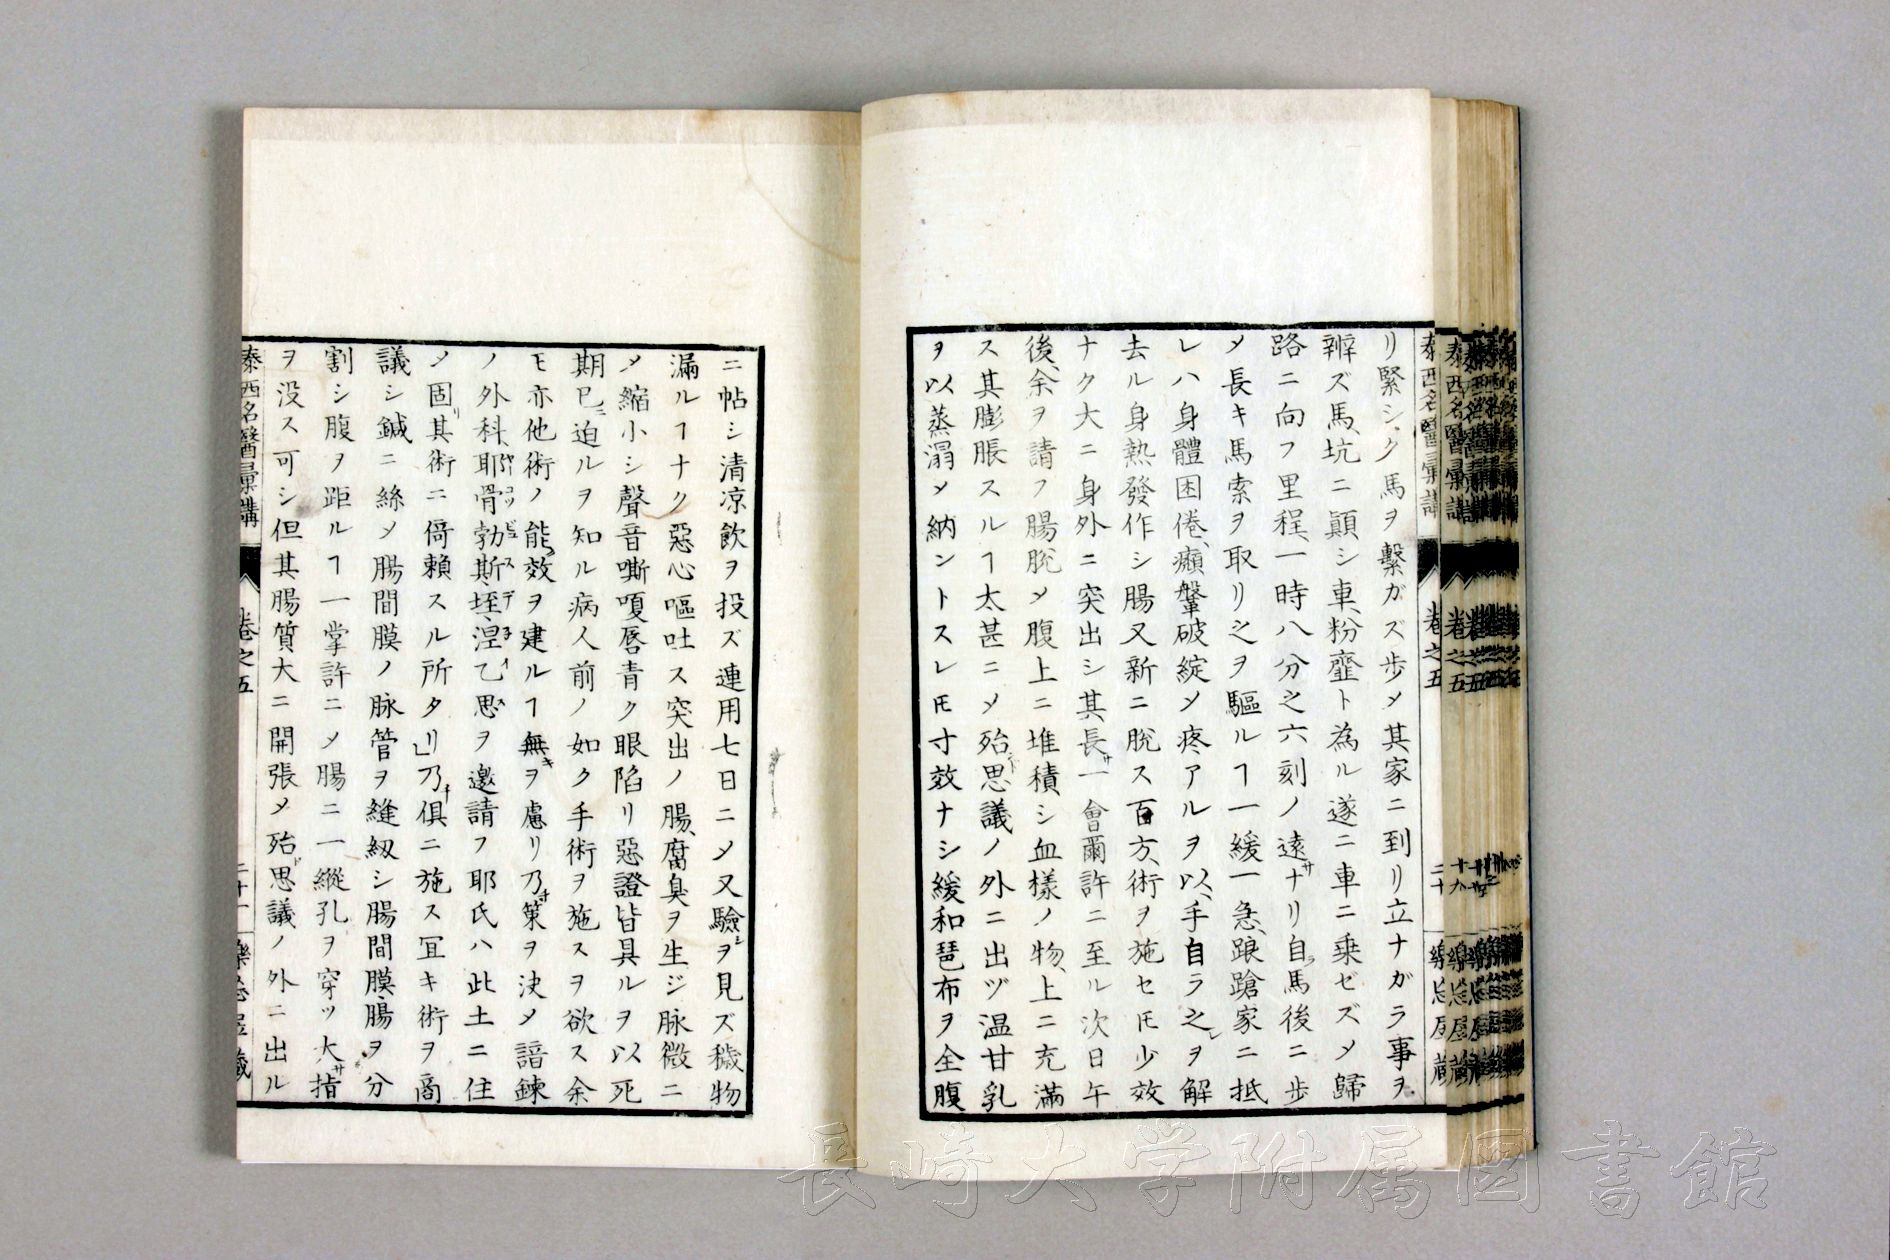 リ緊シク馬ヲ繫ガズ歩メ其家ニ到リ立ナガラ事ヲ
辨ズ馬、坑ニ顚シ車、粉虀ト為ル遂ニ車ニ乗ゼズメ歸
路ニ向フ里程、一時八分之六刻ノ遠サナリ自ラ馬後ニ歩
メ長キ馬索ヲ取リ之ヲ驅ルヿ一緩一急、踉蹌家ニ抵
レハ身體困倦、癲鞶破綻メ疼アルヲ以、手自ラ之ヲ解
去ル身熱發作シ腸又新ニ脫ス百方、術ヲ施セ𪜈少效
ナク大ニ身外ニ突出シ其長サ一會爾許ニ至ル次日午
後、余ヲ請フ腸脫メ腹上ニ堆積シ血樣ノ物、上ニ充滿
ス其膨脹スルヿ太甚ニメ殆ンド思議ノ外ニ出ヅ温甘乳
ヲ以蒸溻メ納ントスレ𪜈寸效ナシ緩和琶布ヲ全腹
ニ帖シ清凉飲ヲ投ズ連用七日ニメ又驗シヲ見ズ穢物
漏ルヿナク惡心嘔吐ス突出ノ腸、腐臭ヲ生ジ脉微ニ
メ縮小シ聲音嘶嗄唇青ク眼陷リ惡證皆具ルヲ以死
期已ニ迫ルヲ知ル病人前ノ如ク手術ヲ施スヲ欲ス余
モ亦他術ノ能效ヲ建ルヿ無キヲ慮リ乃サ策ヲ決メ諳鍊
ノ外科、耶骨勃斯、垤、涅乙思ヲ邀請フ耶氏ハ此土ニ住
メ固リ其術ニ倚賴スル所タリ」乃チ俱ニ施ス冝キ術ヲ商
議シ鍼ニ絲メ腸間膜ノ脉管ヲ縫紉シ腸間膜、腸ヲ分
割シ腹ヲ距ルヿ一掌許ニメ腸ニ一縱孔ヲ穿ツ大サ指
ヲ没ス可シ但其腸質大ニ開張メ殆ド思議ノ外ニ出ル
泰西名醫彙講
卷之五
二十
二十一
長崎大学附属図書館